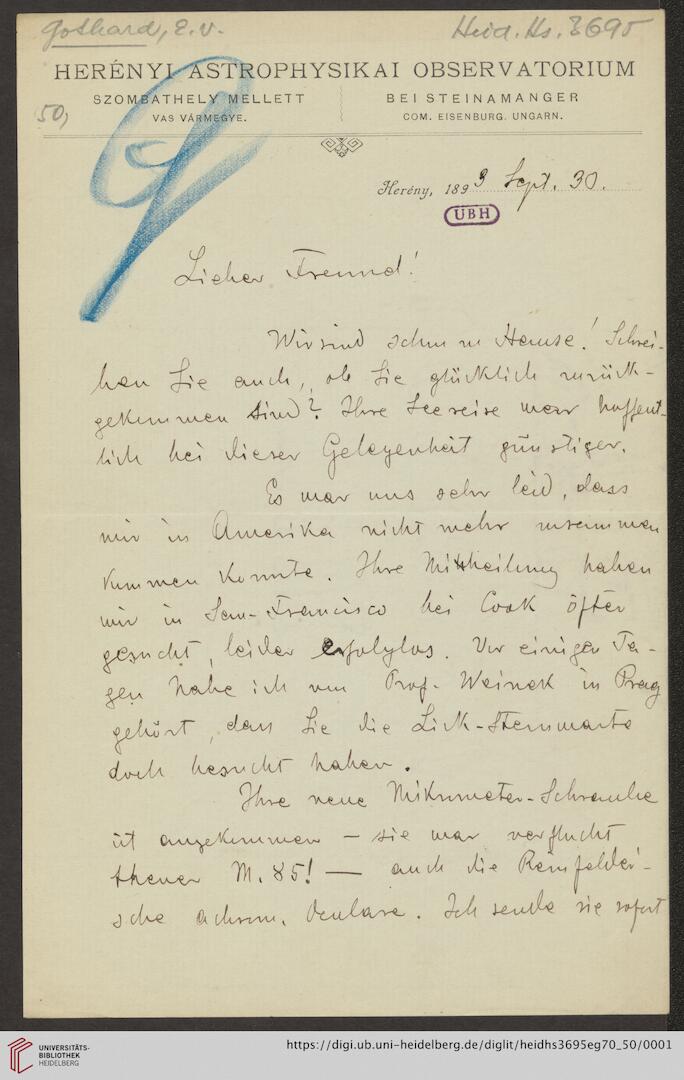 Gothard, E. v.
Heid. Hs. 3695
HERÉNYI ASTROPHYSIKAI OBSERVATORIUM
SZOMBATHELY MELLETT
BEI STEINAMANGER
50,
VAS VÁRMEGYE.
COM. EISENBURG. UNGARN.
Herény, 1893 Sept. 30.
UBH
Lieber Freund!
Wir sind schon zu Hause! Schrei-
ben Sie auch, ob Sie glücklich zurück-
gekommen sind? Ihre Seereise war hoffent-
lich bei dieser Gelegenheit günstiger.
Es war uns sehr leid, dass
wir in Amerika nicht mehr zusammen
kommen konnte. Ihre Mittheilung haben
wir in San-Francisco bei Cook öfter
gesucht, leider erfolglos. Vor einigen Ta-
gen habe ich von Prof. Weinek in Prag
gehört, dass Sie die Lick-Sternwarte
doch besucht haben.
Ihre neue Mikrometer-Schraube
ist angekommen — sie war verflucht
theuer M. 85! — auch die Reinfelder'-
sche achrom. Oculare. Ich sende sie sofort
UNIVERSITÄTS-
BIBLIOTHEK
HEIDELBERG
https://digi.ub.uni-heidelberg.de/diglit/heidhs3695eg70_50/0001